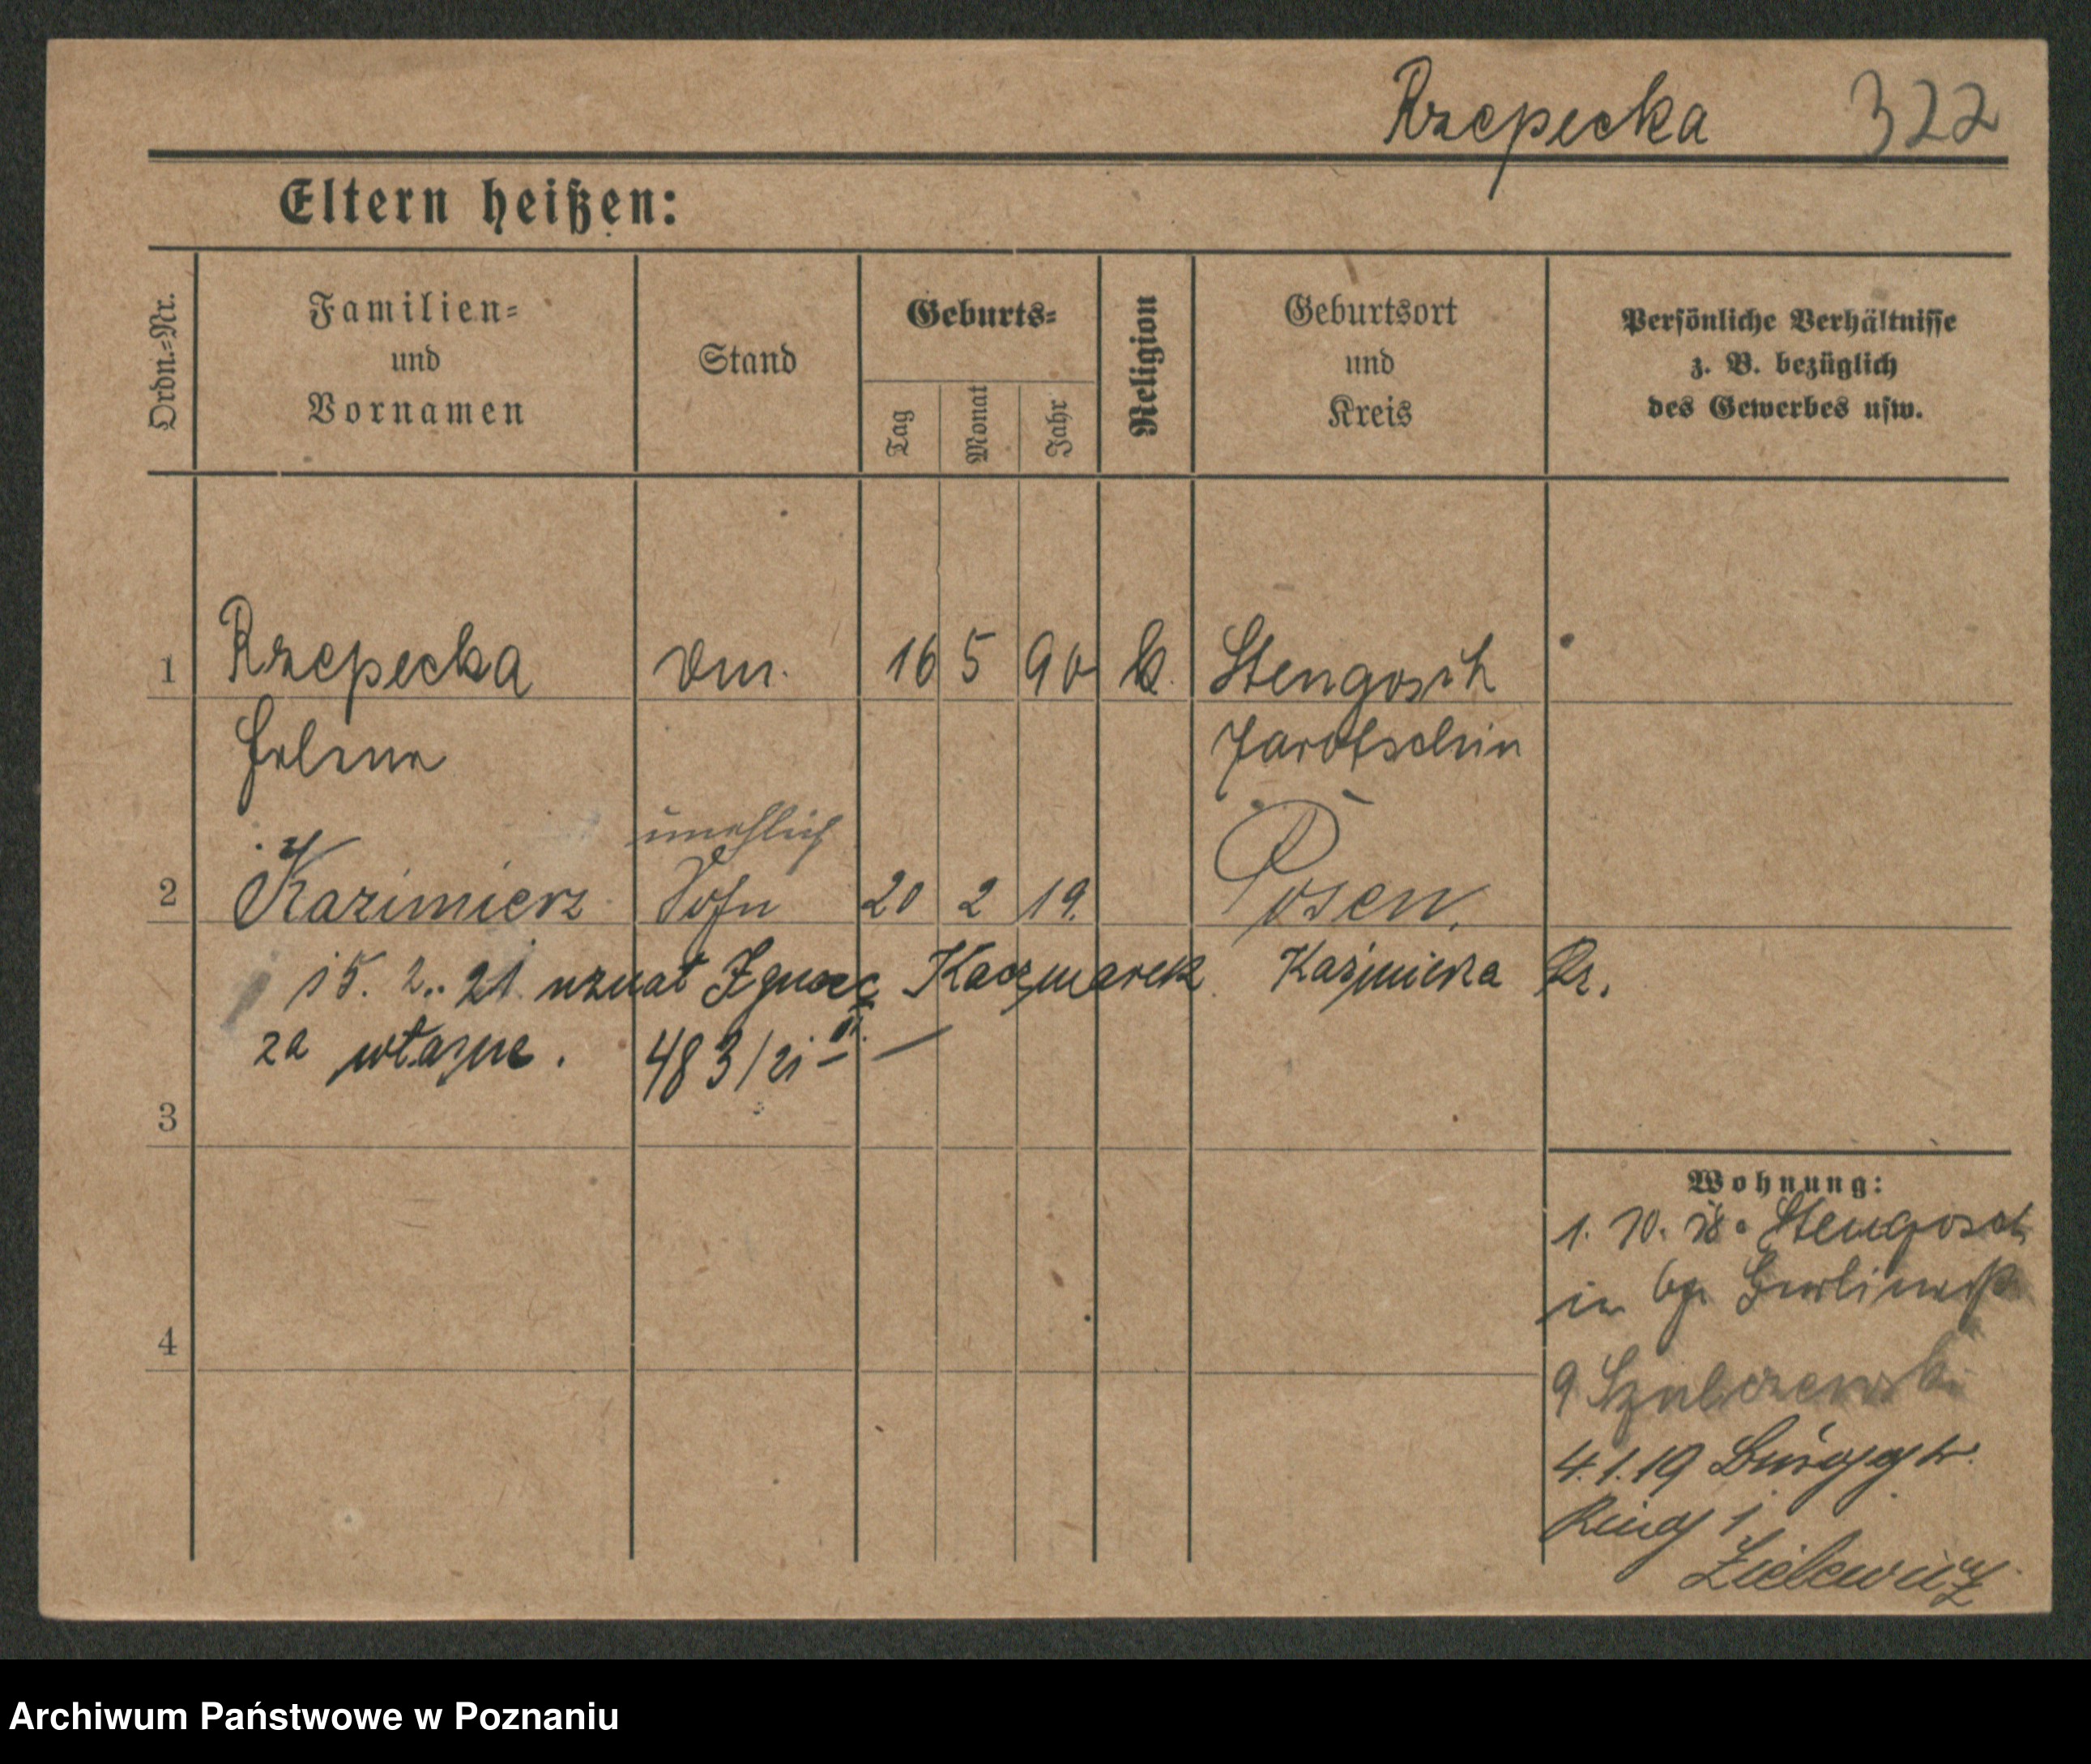 Rzepecka 322
Eltern heißen:
Ordn.-Nr.
Familien-
und
Vornamen
Stand
Geburts-
Tag
Monat
Jahr
Religion
Geburtsort
und
Kreis
Persönliche Verhältnisse
z. B. bezüglich
des Gewerbes usw.
1 Rzepecka 16 5 90 k. Stengosch
Helene Jarotschin
unehlich
2 Kazimierz Sohn 20 2 19. Posen.
15. 2. 21 uznał Ignacy Kaczmarek Kaźmierza Rz.
za własne. 483/21
3
4
Wohnung:
1. 10. 18. Stengosch
in
9 Szulczewski
4. 1. 19
Ring 1
Zielewicz
Archiwum Państwowe w Poznaniu